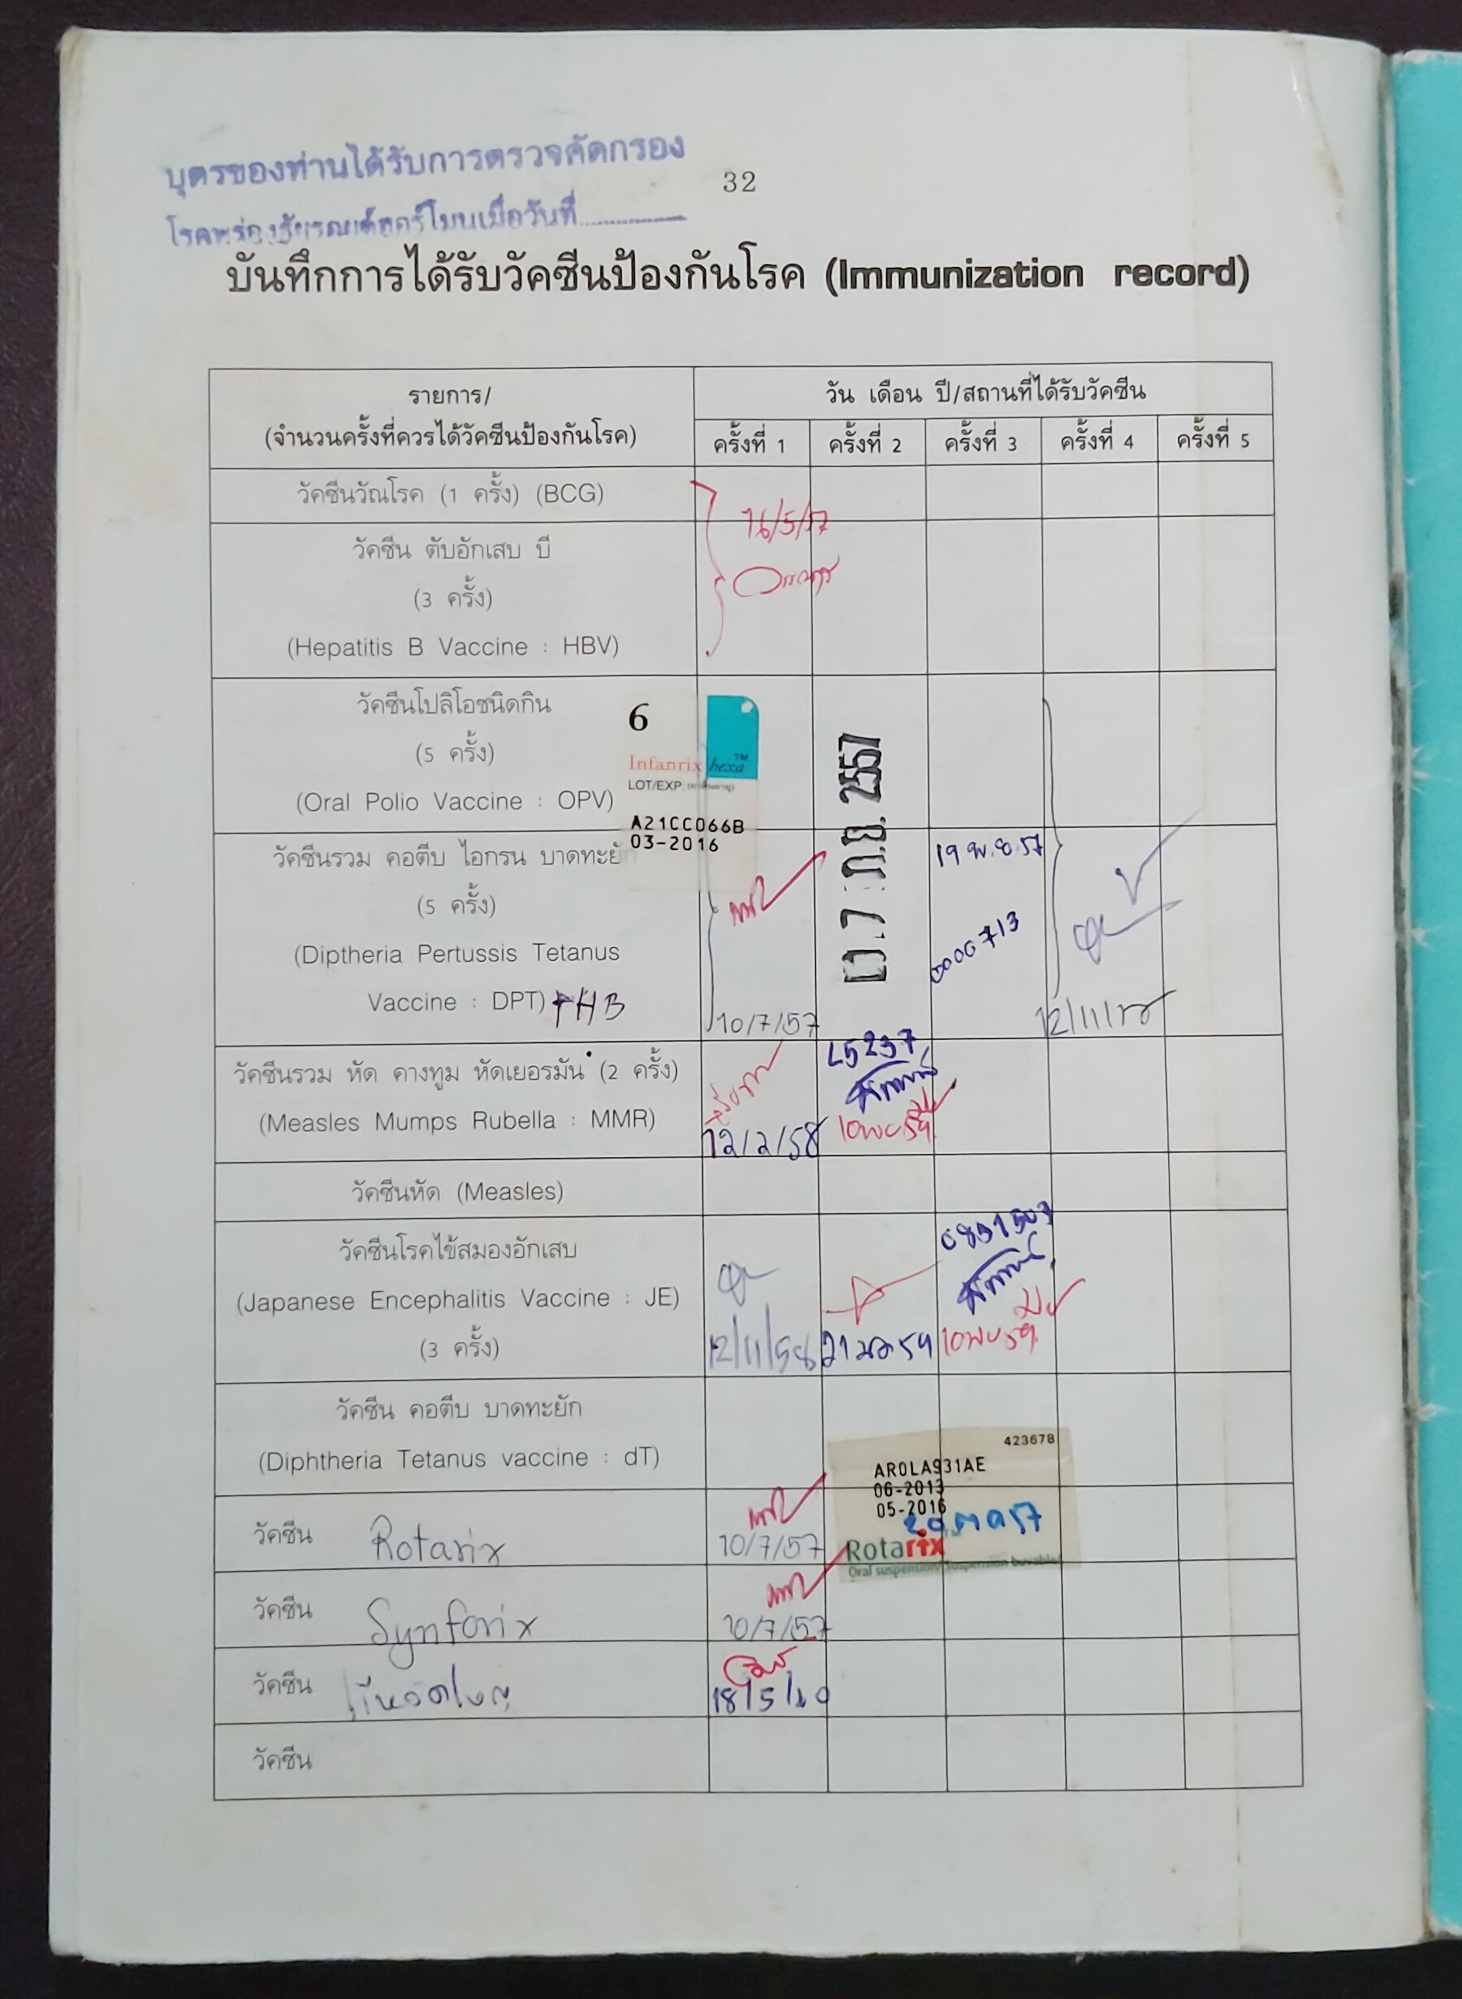 บุตรของท่านได้รับการตรวจคัดกรอง
32
โรคพร่องธัยรอยด์ฮอร์โมนเมื่อวันที่
บันทึกการได้รับวัคซีนป้องกันโรค (Immunization record)
รายการ/
(จำนวนครั้งที่ควรได้วัคซีนป้องกันโรค)
วัน เดือน ปี/สถานที่ได้รับวัคซีน
ครั้งที่ 1 ครั้งที่ 2 ครั้งที่ 3 ครั้งที่ 4 ครั้งที่ 5
วัคซีนวัณโรค (1 ครั้ง) (BCG)
วัคซีน ตับอักเสบ บี
(3 ครั้ง)
(Hepatitis B Vaccine : HBV)
วัคซีนโปลิโอชนิดกิน
(5 ครั้ง)
(Oral Polio Vaccine : OPV)
6
Infanrix hexa™
LOT/EXP:
A21CC066B
03-2016
วัคซีนรวม คอตีบ ไอกรน บาดทะยัก
(5 ครั้ง)
(Diptheria Pertussis Tetanus
Vaccine : DPT) +HB
10/7/57
17 ก.ย. 2557
19 พ.ย. 57
0000713
วัคซีนรวม หัด คางทูม หัดเยอรมัน (2 ครั้ง)
(Measles Mumps Rubella : MMR)
12/2/58
L5237
วัคซีนหัด (Measles)
วัคซีนโรคไข้สมองอักเสบ
(Japanese Encephalitis Vaccine : JE)
(3 ครั้ง)
12/11/58
วัคซีน คอตีบ บาดทะยัก
(Diphtheria Tetanus vaccine : dT)
423678
AROLA931AE
06-2013
05-2016
วัคซีน Rotarix
10/7/57
20 ตค 57
Rotarix™
Oral suspension/Suspension buvable/
วัคซีน Synforix
10/7/57
วัคซีน ไข้หวัดใหญ่
18/5/60
วัคซีน